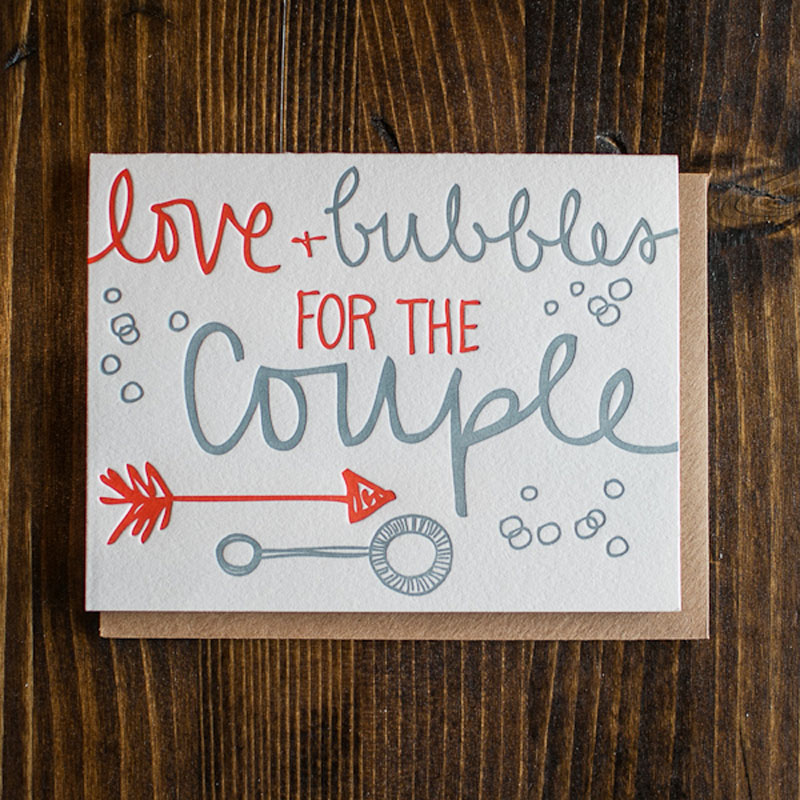 love + bubbles
FOR THE
Couple